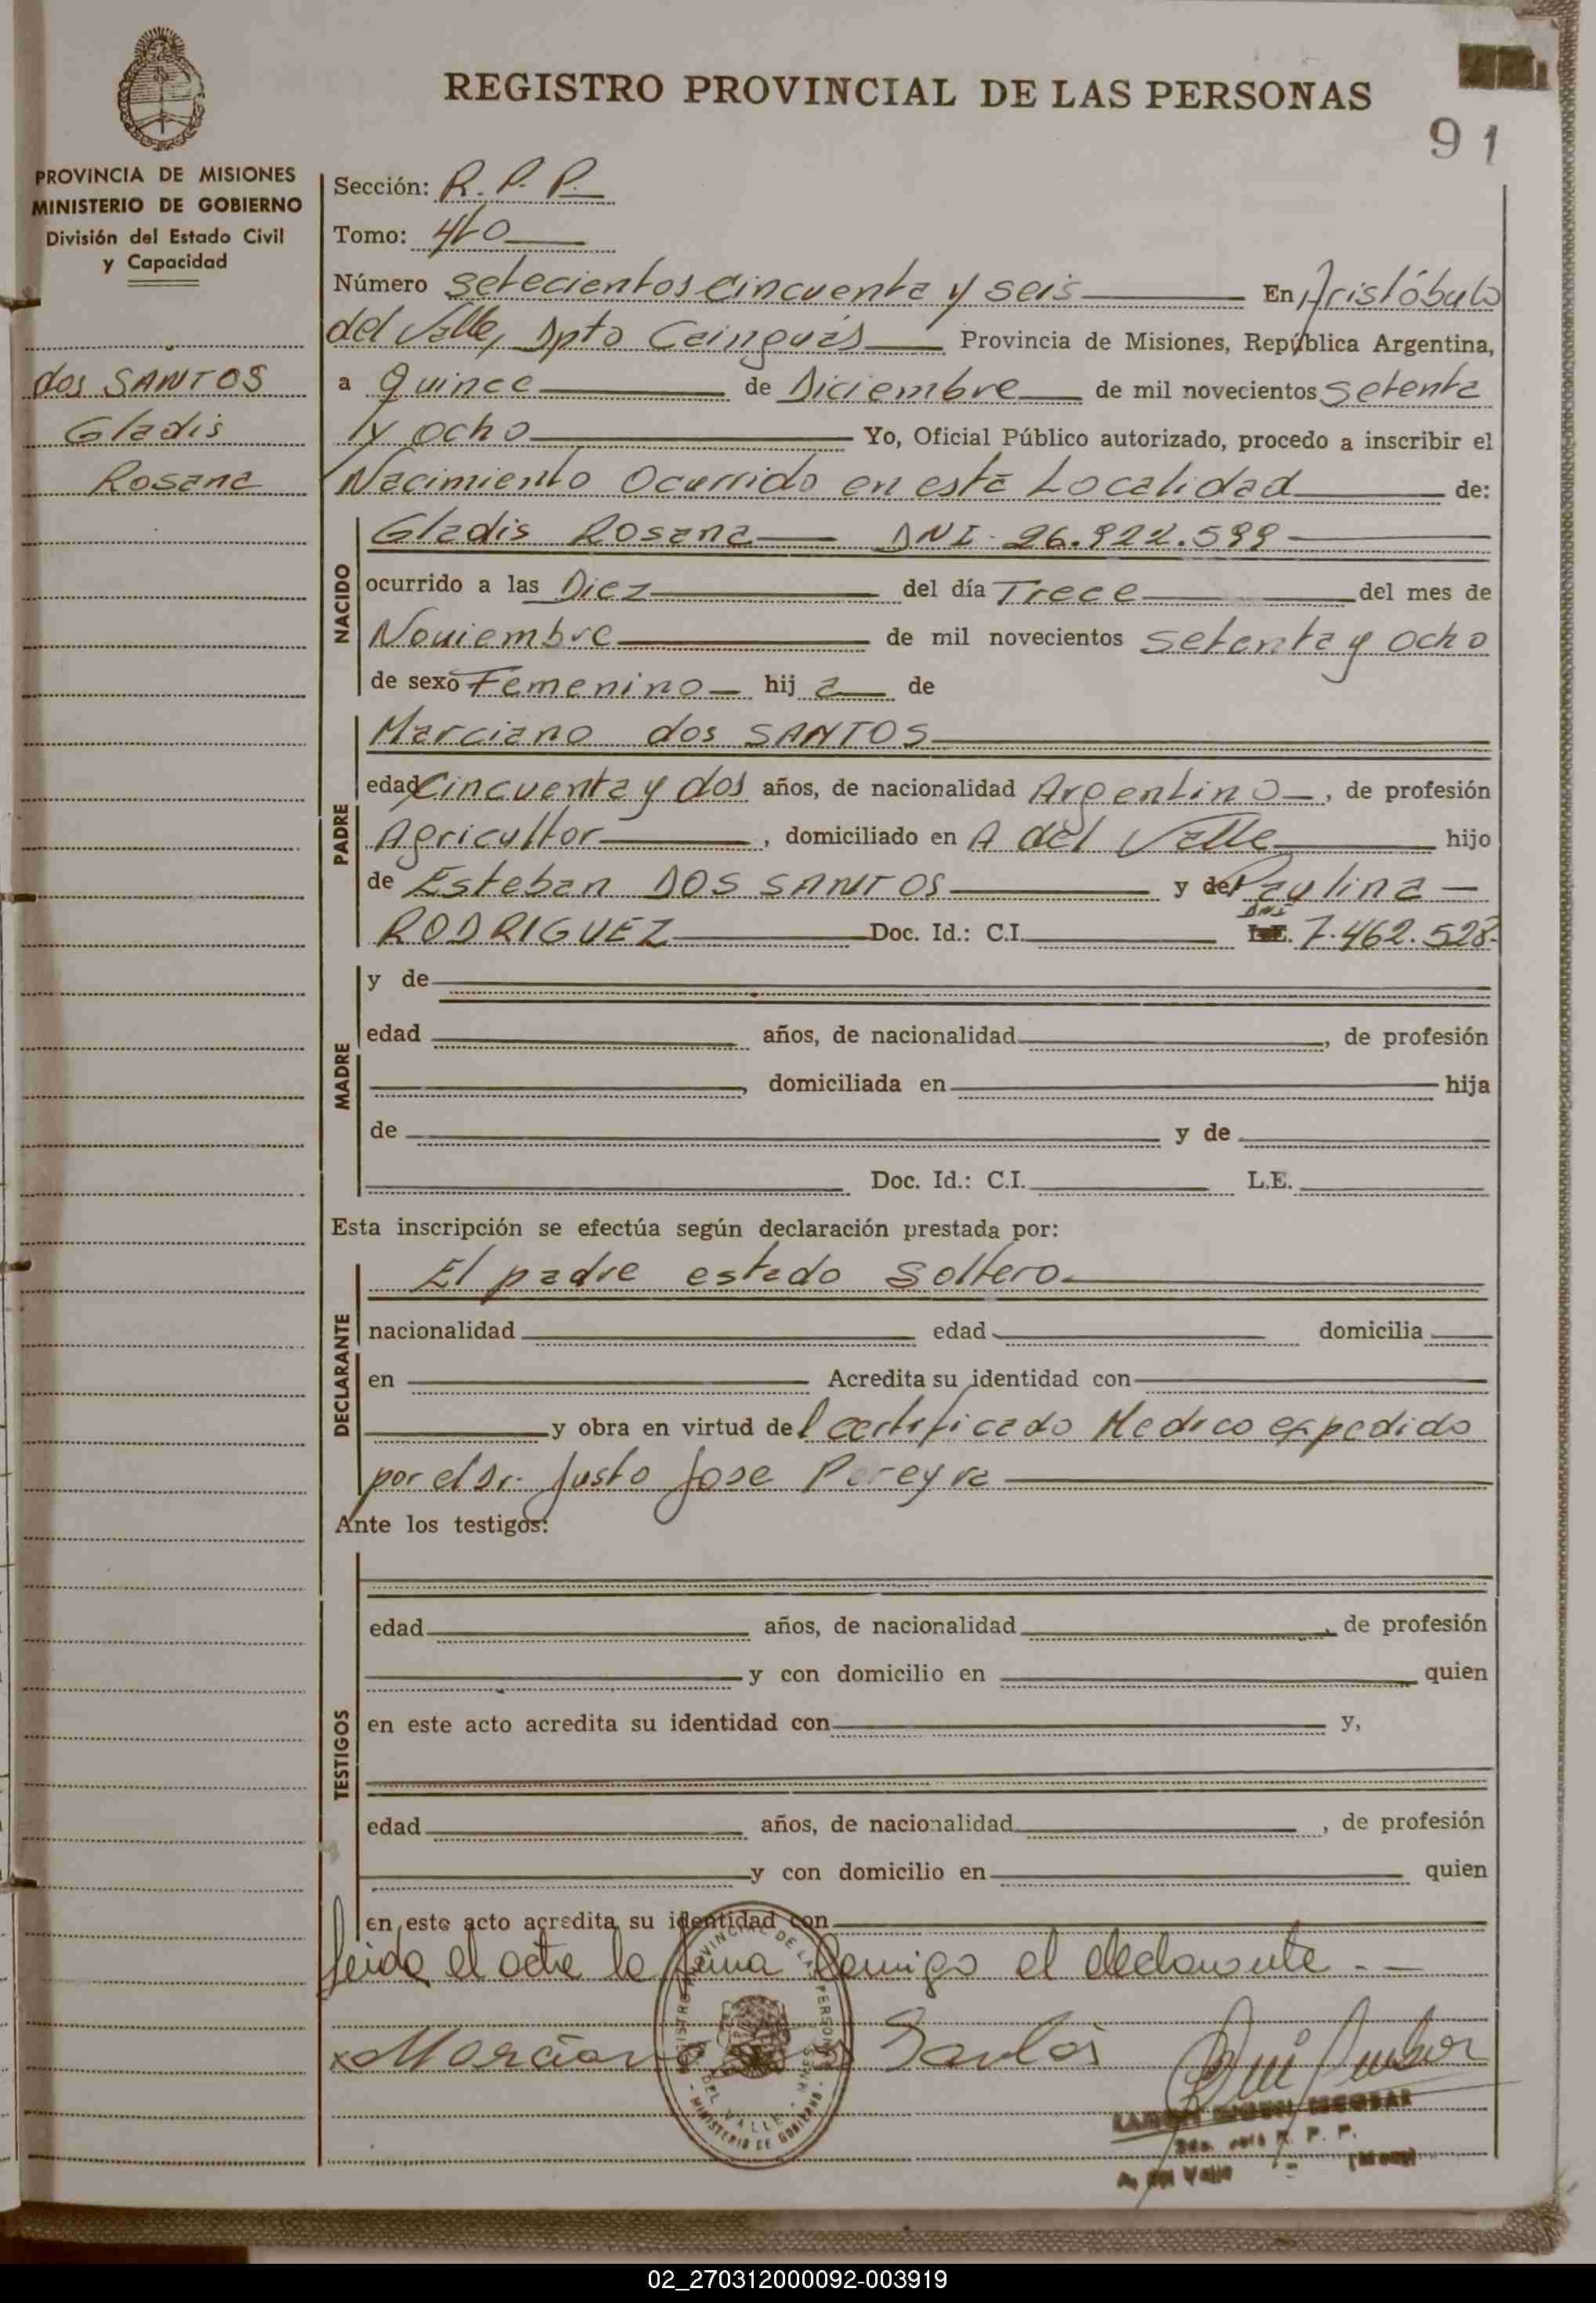 REGISTRO PROVINCIAL DE LAS PERSONAS
91
PROVINCIA DE MISIONES
MINISTERIO DE GOBIERNO
División del Estado Civil
y Capacidad
dos SANTOS
Gladis
Rosana
Sección: R. P. P.
Tomo: 4to
Número setecientos cincuenta y seis En Aristóbulo
del Valle, Dpto Cainguás Provincia de Misiones, República Argentina,
a quince de Diciembre de mil novecientos setenta
y ocho Yo, Oficial Público autorizado, procedo a inscribir el
Nacimiento Ocurrido en esta Localidad de:
NACIDO
Gladis Rosana DNI. 26.922.599
ocurrido a las Diez del día Trece del mes de
Noviembre de mil novecientos setenta y ocho
de sexo Femenino hij a de
PADRE
Marciano dos SANTOS
edad Cincuenta y dos años, de nacionalidad Argentino, de profesión
Agricultor, domiciliado en A del Valle hijo
de Esteban DOS SANTOS y de Paulina
DNI
RODRIGUEZ Doc. Id.: C.I. L.E. 7.462.528
MADRE
y de
edad años, de nacionalidad, de profesión
, domiciliada en hija
de y de
Doc. Id.: C.I. L.E.
Esta inscripción se efectúa según declaración prestada por:
DECLARANTE
El padre estado soltero
nacionalidad edad domicilia
en Acredita su identidad con
y obra en virtud del certificado Medico expedido
por el Dr. Justo Jose Pereyra
Ante los testigos:
TESTIGOS
edad años, de nacionalidad, de profesión
y con domicilio en quien
en este acto acredita su identidad con y,
edad años, de nacionalidad, de profesión
y con domicilio en quien
en este acto acredita su identidad con
leida el acta la firma conmigo el declarante. -
x Marciano dos Santos
REGISTRO PROVINCIAL DE LAS PERSONAS
DEL VALLE - MNES
MINISTERIO DE GOBIERNO
R. P. P.
A. del Valle
02_270312000092-003919